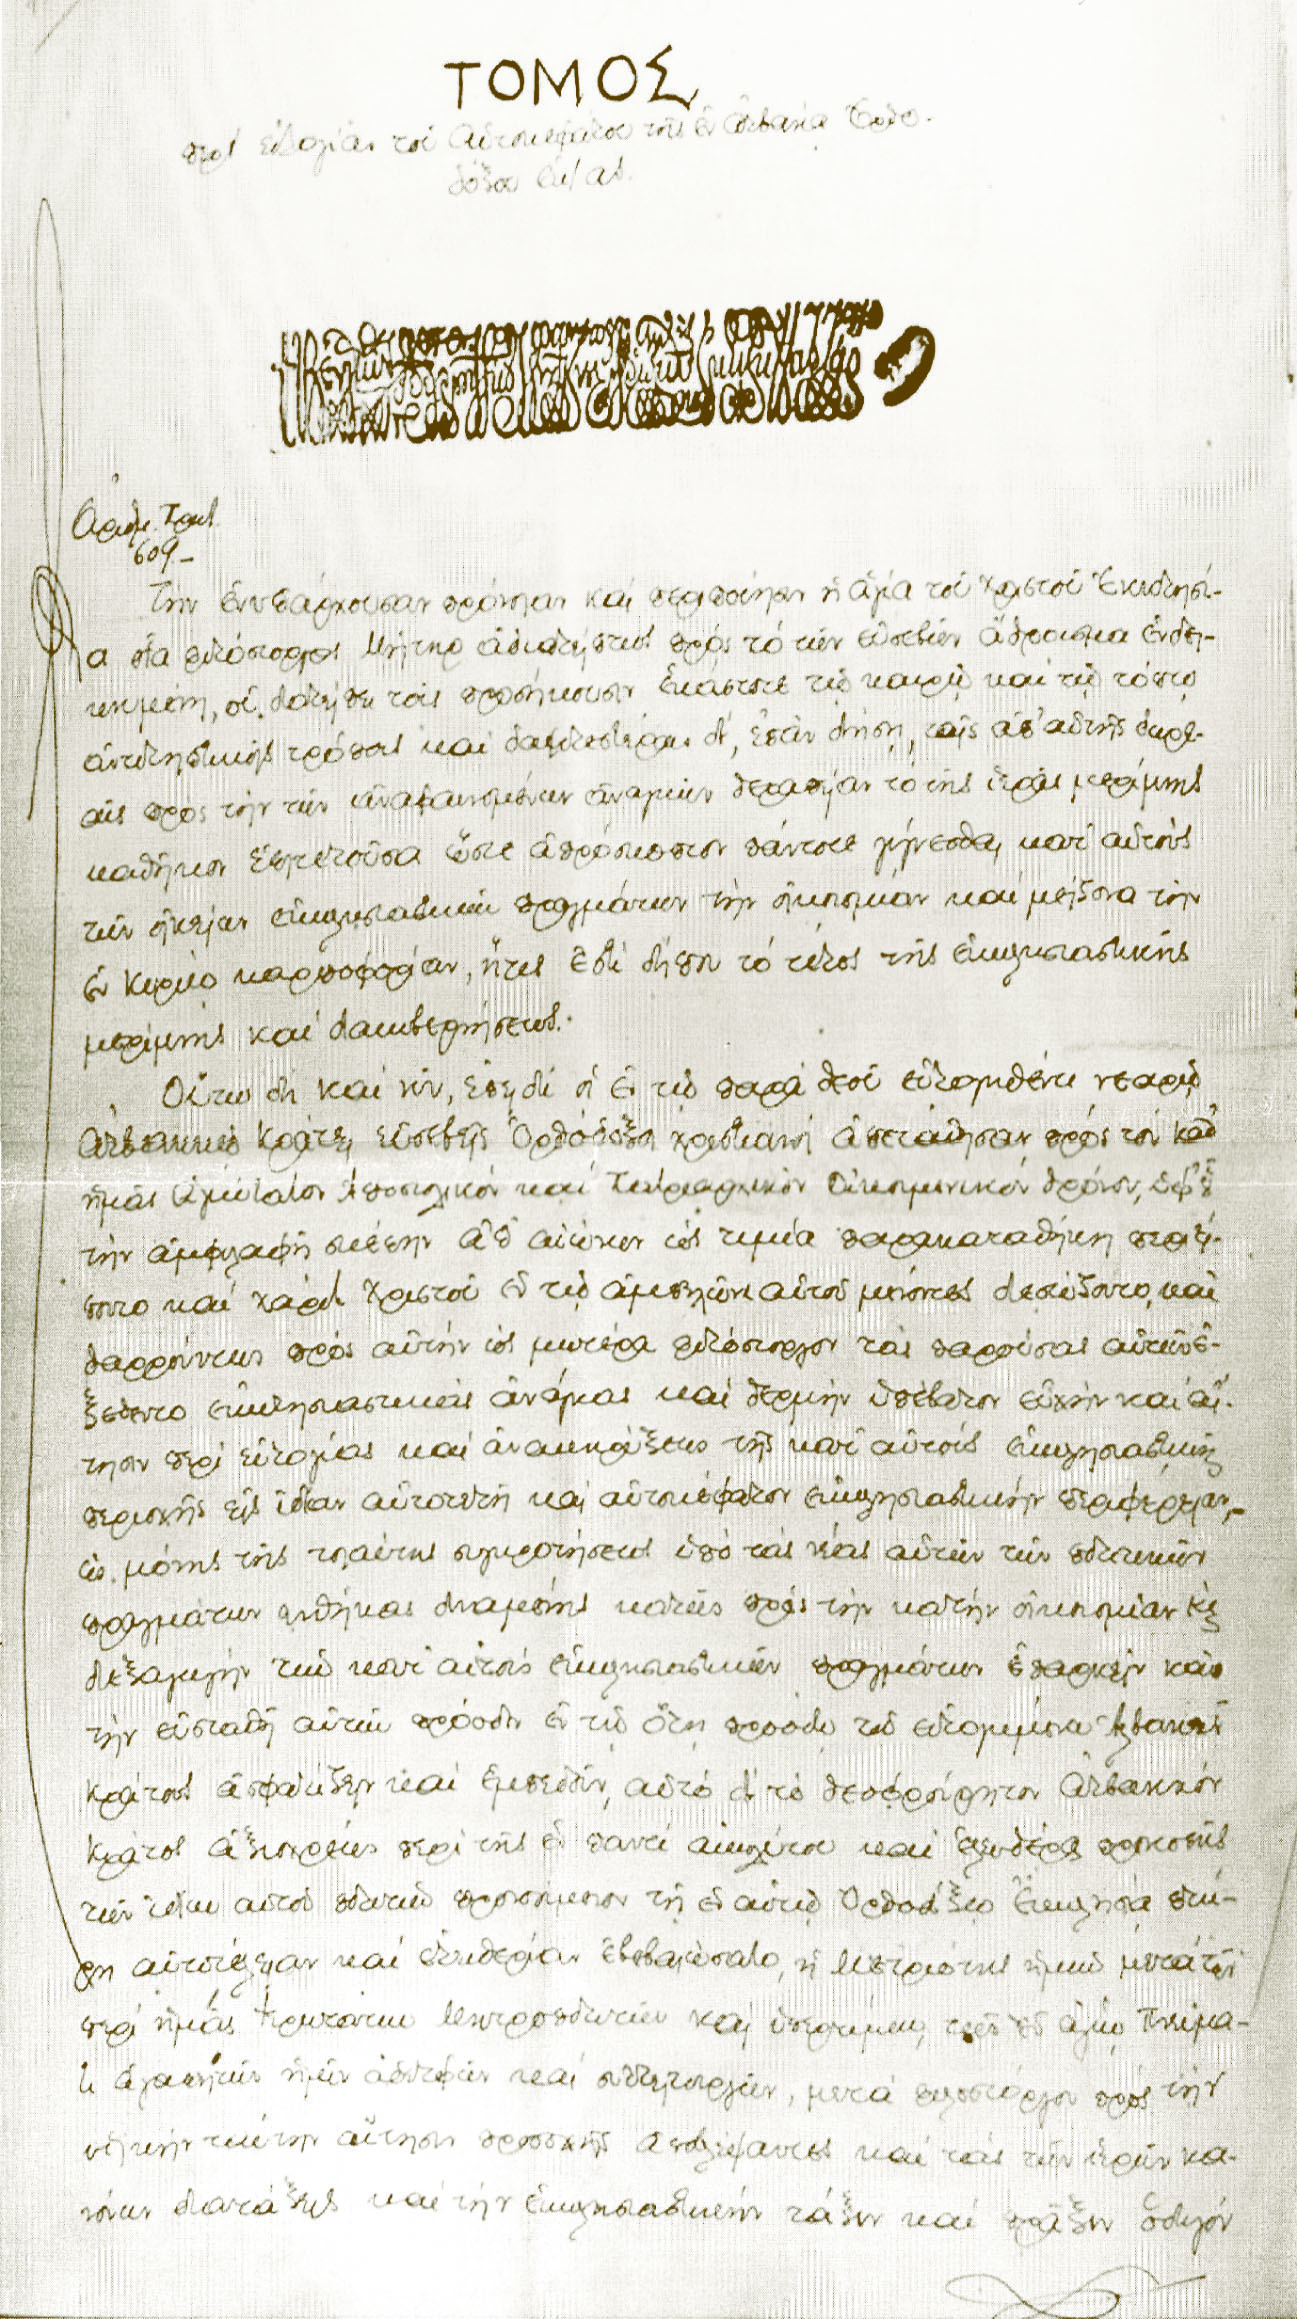 ΤΟΜΟΣ
περὶ εὐλογίας τοῦ Αὐτοκεφάλου τῆς ἐν Ἀλβανίᾳ Ὀρθο-
δόξου Ἐκ/σίας.
Ἀριθμ. Πρωτ.
609-
Τὴν ἐνυπάρχουσαν πρόνοιαν καὶ περιποίησιν ἡ ἁγία τοῦ Χριστοῦ Ἐκκλησί-
α οἷα φιλόστοργος Μήτηρ ἀδιαλείπτως πρὸς τὸ τῶν εὐσεβῶν ἄθροισμα ἐνδει-
κνυμένη, οὐ διαλείπει τοῖς προσήκουσιν ἑκάστοτε τῷ καιρῷ καὶ τῷ τόπῳ
ἀντιληπτικοῖς τρόποις καὶ δαψιλεστέραις δέ, ἐπὰν δεήσῃ, ταῖς ἀπ' αὐτῆς δωρε-
αῖς πρὸς τὴν τῶν ἀναφαινομένων ἀναγκῶν θεραπείαν τὸ τῆς ἱερᾶς μερίμνης
καθῆκον ἐκτελοῦσα ὥστε ἀπρόσκοπτον πάντοτε γίγνεσθαι κατ' αὐτοὺς
τῶν οἰκείων ἐκκλησιαστικῶν πραγμάτων τὴν οἰκονομίαν καὶ μείζονα τὴν
ἐν Κυρίῳ καρποφορίαν, ἥτις ἐστὶ δήπου τὸ τέλος τῆς ἐκκλησιαστικῆς
μερίμνης καὶ διακυβερνήσεως.
Οὕτω δὴ καὶ νῦν, ἐπειδὴ οἱ ἐν τῷ παρὰ Θεοῦ εὐλογηθέντι νεαρῷ
Ἀλβανικῷ Κράτει εὐσεβεῖς Ὀρθόδοξοι χριστιανοὶ ἀπετάθησαν πρὸς τὸν καθ'
ἡμᾶς ἁγιώτατον Ἀποστολικὸν καὶ Πατριαρχικὸν Οἰκουμενικὸν Θρόνον, ὑφ' οὗ
τὴν ἀμφιλαφῆ σκέπην ἀπ' αἰώνων ὡς τιμία παρακαταθήκη περιεί-
ποντο καὶ χάριτι Χριστοῦ ἐν τῷ ἀμπελῶνι αὐτοῦ μένοντες διεσώζοντο, καὶ
θαρρούντως πρὸς αὐτὴν ὡς μητέρα φιλόστοργον τὰς παρούσας αὐτῶν ἐ-
ξέθεντο ἐκκλησιαστικὰς ἀνάγκας καὶ θερμὴν ὑπέβαλον εὐχὴν καὶ αἴ-
τησιν περὶ εὐλογίας καὶ ἀνακηρύξεως τῆς κατ' αὐτοὺς ἐκκλησιαστικῆς
περιοχῆς εἰς ἰδίαν αὐτοτελῆ καὶ αὐτοκέφαλον ἐκκλησιαστικὴν περιφέρειαν,
ὡς μόνης τῆς τοιαύτης συγκροτήσεως ὑπὸ τὰς νέας αὐτῶν τῶν πολιτικῶν
πραγμάτων συνθήκας δυναμένης καλῶς πρὸς τὴν καλὴν οἰκονομίαν καὶ
διεξαγωγὴν τῶν κατ' αὐτοὺς ἐκκλησιαστικῶν πραγμάτων ἐπαρκεῖν καὶ
τὴν εὐσταθῆ αὐτῶν πρόοδον ἐν τῇ ὅλῃ προόδῳ τοῦ εὐλογημένου Ἀλβανικοῦ
Κράτους ἀσφαλίζειν καὶ ἐμπεδοῦν, αὐτὸ δὲ τὸ θεοφρούρητον Ἀλβανικὸν
Κράτος ἀξιοχρέως περὶ τῆς ἐν παντὶ ἀκωλύτου καὶ ἐλευθέρας θρησκείας
τῶν ἰδίων αὐτοῦ πολιτῶν προνοούμενον τῇ ἐν αὐτῷ Ὀρθοδόξῳ Ἐκκλησίᾳ πλή-
ρη αὐτοτέλειαν καὶ ἐλευθερίαν ἐβεβαιώσατο, ἡ Μετριότης ἡμῶν μετὰ τῶν
περὶ ἡμᾶς Ἱερωτάτων Μητροπολιτῶν καὶ ὑπερτίμων, τῶν ἐν ἁγίῳ Πνεύμα-
τι ἀγαπητῶν ἡμῖν ἀδελφῶν καὶ συλλειτουργῶν, μετὰ φιλοστόργου πρὸς τὴν
υἱικὴν ταύτην αἴτησιν προσοχῆς ἀποβλέψαντες καὶ τὰς τῶν ἱερῶν κα-
νόνων διατάξεις καὶ τὴν ἐκκλησιαστικὴν τάξιν καὶ πρᾶξιν ὁδηγὸν